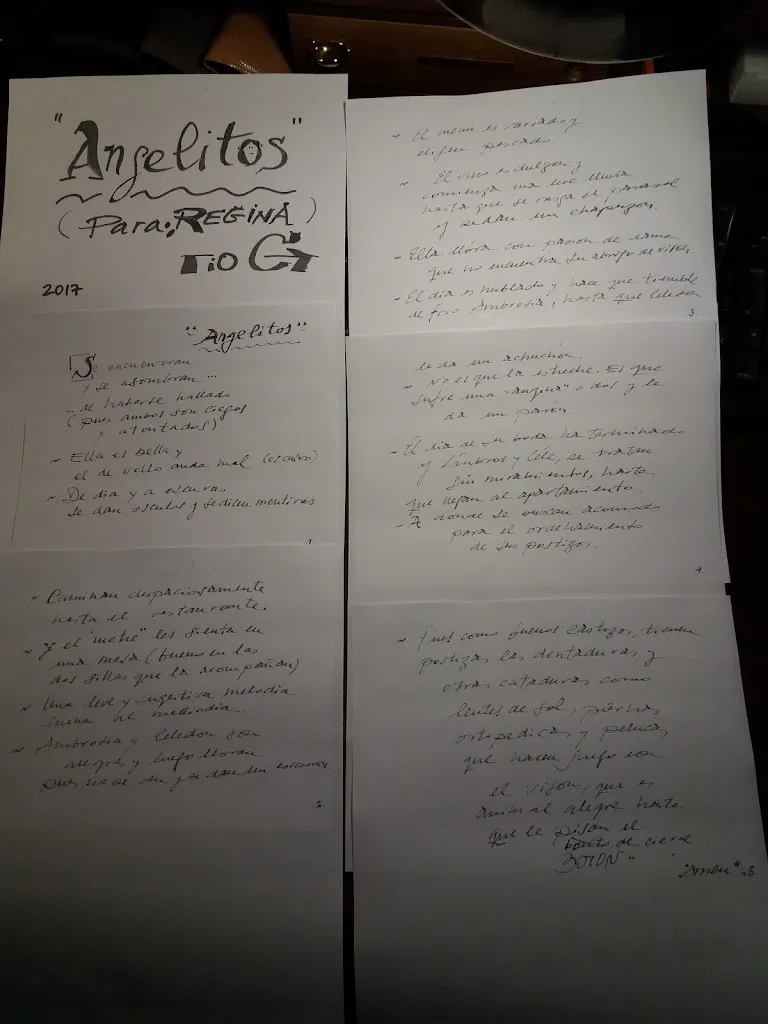 "Angelitos"
(Para: REGINA)
TIO G
2017
"Angelitos"
Se encuentran
y se asombran ...
... de haberse hallado
(pues ambos son ciegos
y atontados).
~ Ella es bella y
el de vello anda mal (escaso)
~ De dia y a oscuras
se dan osculos y se dicen mentiras.
1
~ Caminan despaciosamente
hasta el restaurante.
~ y el "metre" los sienta en
una mesa (bueno en las
dos sillas que la acompañan)
~ Una leve y sugestiva melodia
suena al mediodia.
~ Ambrosia y Celedon son
alegres y luego lloran
pues no se
2
~ El menu es variado y
eligen pescado.
~ El vino es dulzon y
comienza una leve lluvia
hasta que se rasga el parasol
y se dan un chapuzon.
~ Ella llora con pasion de dama
que no encuentra su abrigo de vison.
~ El dia es nublado y hace que tiemble
de frio Ambrosia, hasta que Celedon
3.
le da un achuchon.
~ No es que la estreche. Es que
sufre una "angina" o dos y le
da un
~ El dia de su boda ha terminado
y Ambros y Cele, se tratan
sin miramientos, hasta
que llegan al apartamento.
~ A donde se buscan acomodo
para el ordenamiento
de sus postizos.
4.
~ Pues como buenos castizos, tienen
postizas las dentaduras y
otras cataduras como
lentes de sol, piernas
ortopedicas y pelucas
que hacen juego con
el vison, que es
animal alegre hasta
que le pisan el
de cierre.
BOTON"
5.